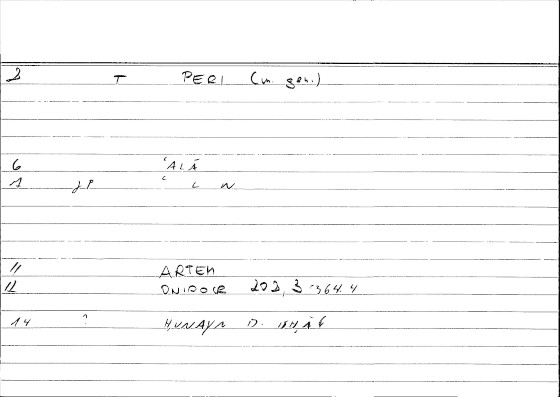 2 T PERI (w. gen.)
6 ʿALĀ
1 ʿ L W
11 ARTEM
12 ONIROCR 202, 3-364.4
14 ? ḤUNAYN B. ISḤĀQ